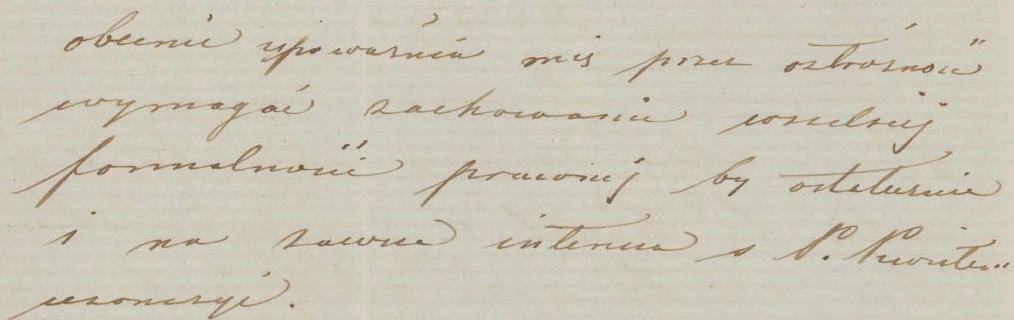 obecnie upoważnia mię przez ostrożność
wymagać zachowania wszelkiej
formalności prawnej by ostatecznie
i na zawsze interesa z P.